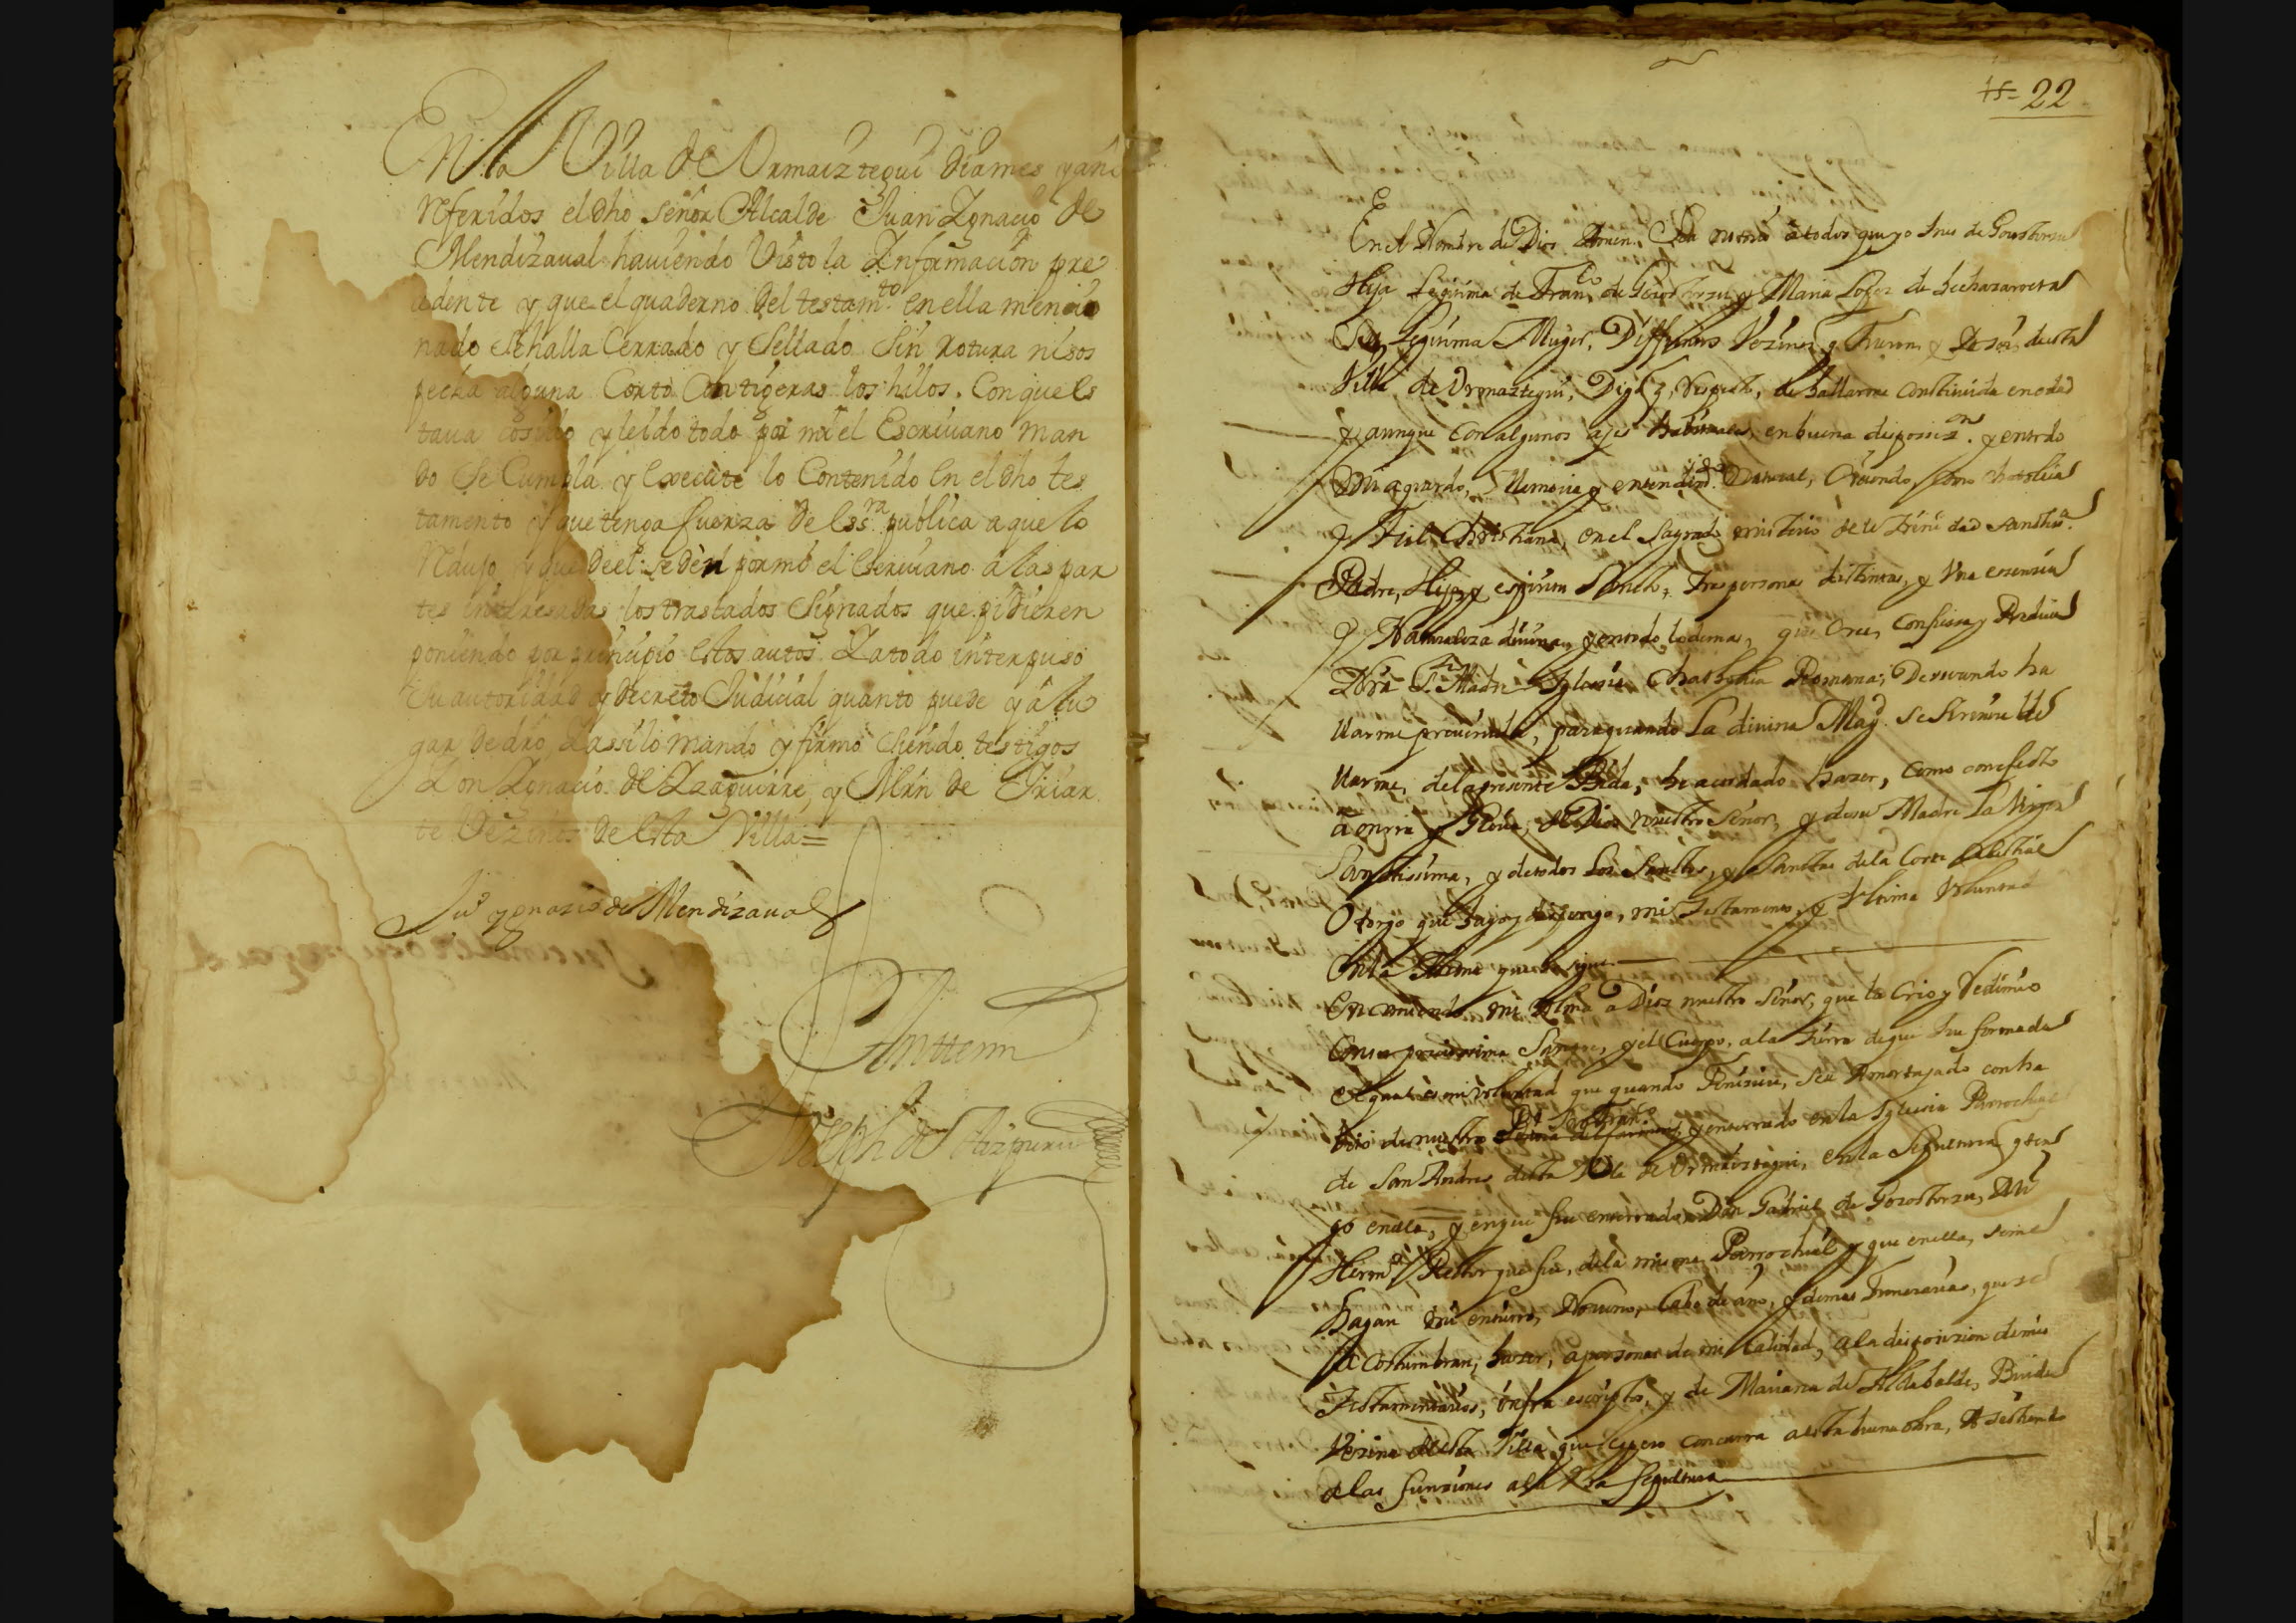 En la Villa de Ormaiztegui dia mes y año
referidos el dho señor Alcalde Juan Ignacio de
Mendizaval haviendo visto la Informacion pre
cedente y que el quaderno del testamto en ella mencio
nado se halla Cerrado y Sellado Sin rotura ni sos
pecha alguna Corto Con tigeras los hilos. Con que es
tava cosido y leido todo por mi el Escrivano man
do Se Cumpla y execute lo Contenido en el dho tes
tamento y que tenga fuerza de essra publica a que lo
redujo y que de el se den por mi el escrivano a las par
tes interesadas los traslados Signados que pidieren
poniendo por principio estos autos. I a todo interpuso
su autoridad y decreto Judicial quanto puede y a lu
gar de dro, I assi lo mando y firmo siendo testigos
Don Ignacio de Izaguirre, y Mrn de Iriar
te Vezinos de esta Villa=
Jun ygnazio de Mendizaval
Ante mi
Joseph de Aizpuru
22
En el Nombre de Dios Amen. Sea notorio a todos que yo Ines de Gorostorzu
Hija Legitima de Franco de Gorostorzu y Maria Lopez de
Su Legitima Muger, Difuntos Vezinos q fueron y Yo soi desta
Villa de Ormaztegui, Digo q, respecto, de hallarme constituida en edad
y aunque con algunos ajes habituales, en buena disposizon. y en todo
mi aquerdo, Memoria y entendimto Natural, Creiendo, como Catholica
y Fiel Christiana, en el Sagrado misterio de la Trinidad Sanctissa.
Padre, Hijo, y espiritu Sancto, tres personas distintas, y Una essencia
y Naturaleza divina, y en todo lo demas, que Cree, confiessa y Predica
Nra Sta Madre Iglesia Chatholica Romana; Deseando ha
llarme prevenida, para quando La divina Magd. se sirviere lle
varme, de la presente Vida, he acordado hazer, como con efecto
a onrra y Gloria, de Dios nuestro Señor, y de su Madre La Virgen
Sanctissima, y de todos Los Santos, y Santas de la Corte Celestial
Otorgo que hago y dispongo, mi Testamento, y Ultima Voluntad
en la forma que se sigue
Encomiendo mi Alma a Dios nuestro Señor, que la Crio y Redimio
Con su preciosisima Sangre, y el Cuerpo, a la tierra de que fue formado
el qual es mi voluntad que quando Feneciere, sea Amortajado con ha
bito de nuestro Pe Sn Franco y enterrado en la Iglesia Parrochial
de San Andres desta Villa de Ormaiztegui, en la Sepultura q ten
go en ella, y en que fue enterrado Don Gabriel de Gorostorzu, Mi
Hermo Rector que fue, de la misma Parrochial y que en ella, se me
hagan mi entierro, Noveno, Cabo de año, y demas Funerarias, que se
acostumbran, hazer, a personas de mi Calidad, a la disposizion de mis
Testamentarios, infra escriptos, y de Mariana de Aldabalde, Biuda
Vezina de esta Villa que espero concurra a esta buena obra, Asistiendo
a las funziones a la dha sepultura